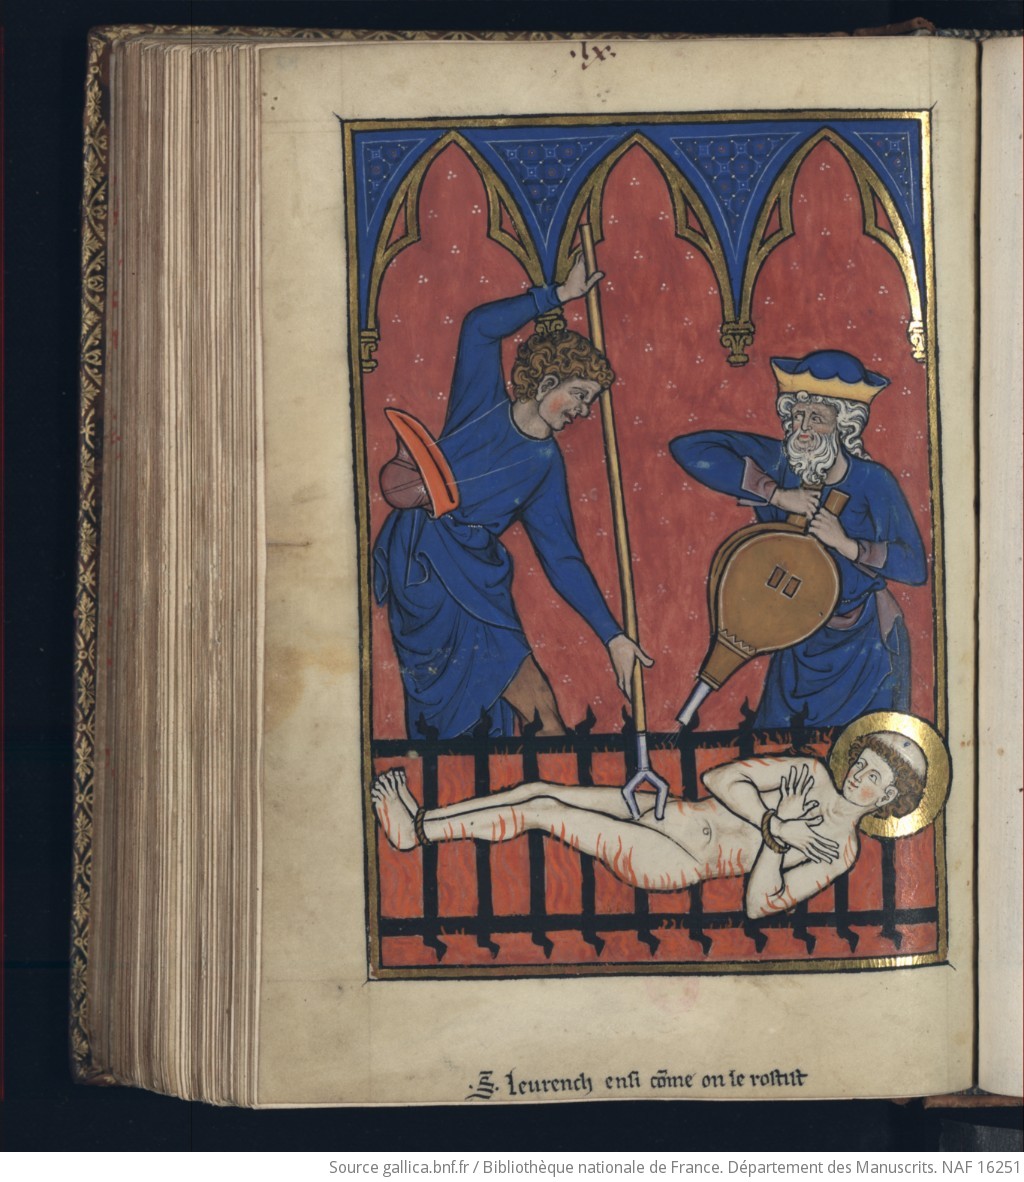 .lx.
.S̄. leurench ensi cōme on le rostist
Source gallica.bnf.fr / Bibliothèque nationale de France. Département des Manuscrits. NAF 16251